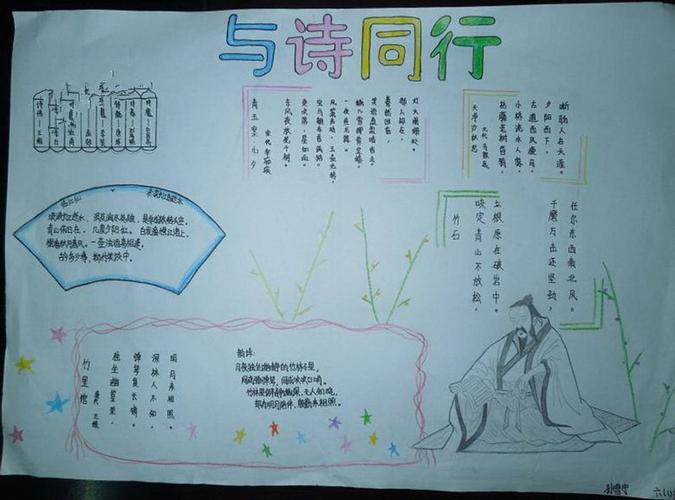 与诗同行
诗佛—王维
临江仙
滚滚长江东逝水
滚滚长江东逝水，浪花淘尽英雄。是非成败转头空。
青山依旧在，几度夕阳红。白发渔樵江渚上，
惯看秋月春风。一壶浊酒喜相逢。
古今多少事，都付笑谈中。
青玉案·元夕
宋代辛弃疾
东风夜放花千树。
更吹落、星如雨。
宝马雕车香满路。
凤箫声动，玉壶光转，
一夜鱼龙舞。
蛾儿雪柳黄金缕
笑语盈盈暗香去。
蓦然回首，
那人却在，
灯火阑珊处。
天净沙秋思
元代 马致远
枯藤老树昏鸦，
小桥流水人家，
古道西风瘦马。
夕阳西下，
断肠人在天涯。
竹石
咬定青山不放松，
立根原在破岩中。
千磨万击还坚劲，
任尔东西南北风。
竹里馆
唐 王维
独坐幽篁里，
弹琴复长啸。
深林人不知，
明月来相照。
韵译：
月夜独坐幽静的竹林子里，
间或弹弹琴，间或吹吹口哨。
竹林里僻静幽深，无人知晓，
却有明月陪伴，殷勤来相照。
六(1)